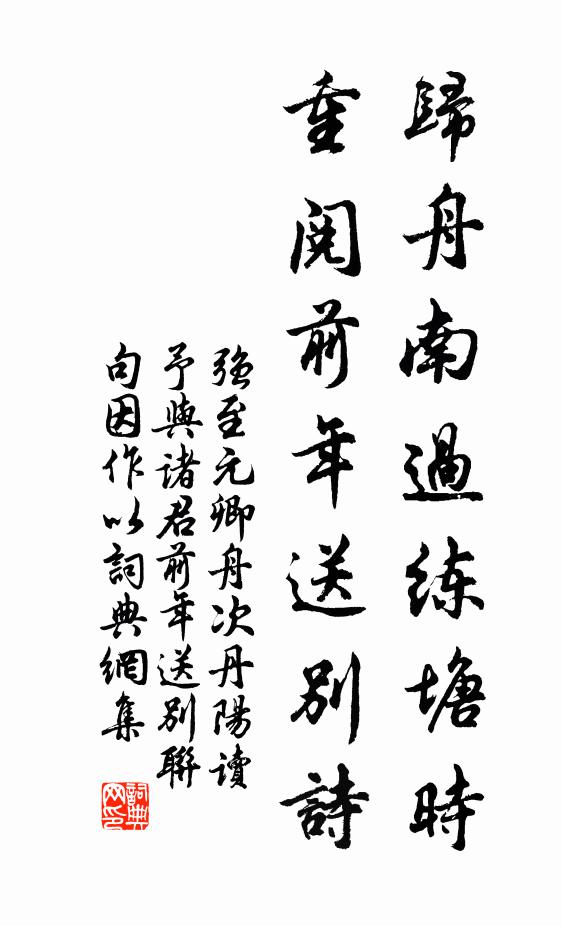 歸舟南過练塘時
重閱前年送別詩
強至元卿舟次丹陽讀
予與诸君前年送别聯
句因作以詞典網集
詞典
网印